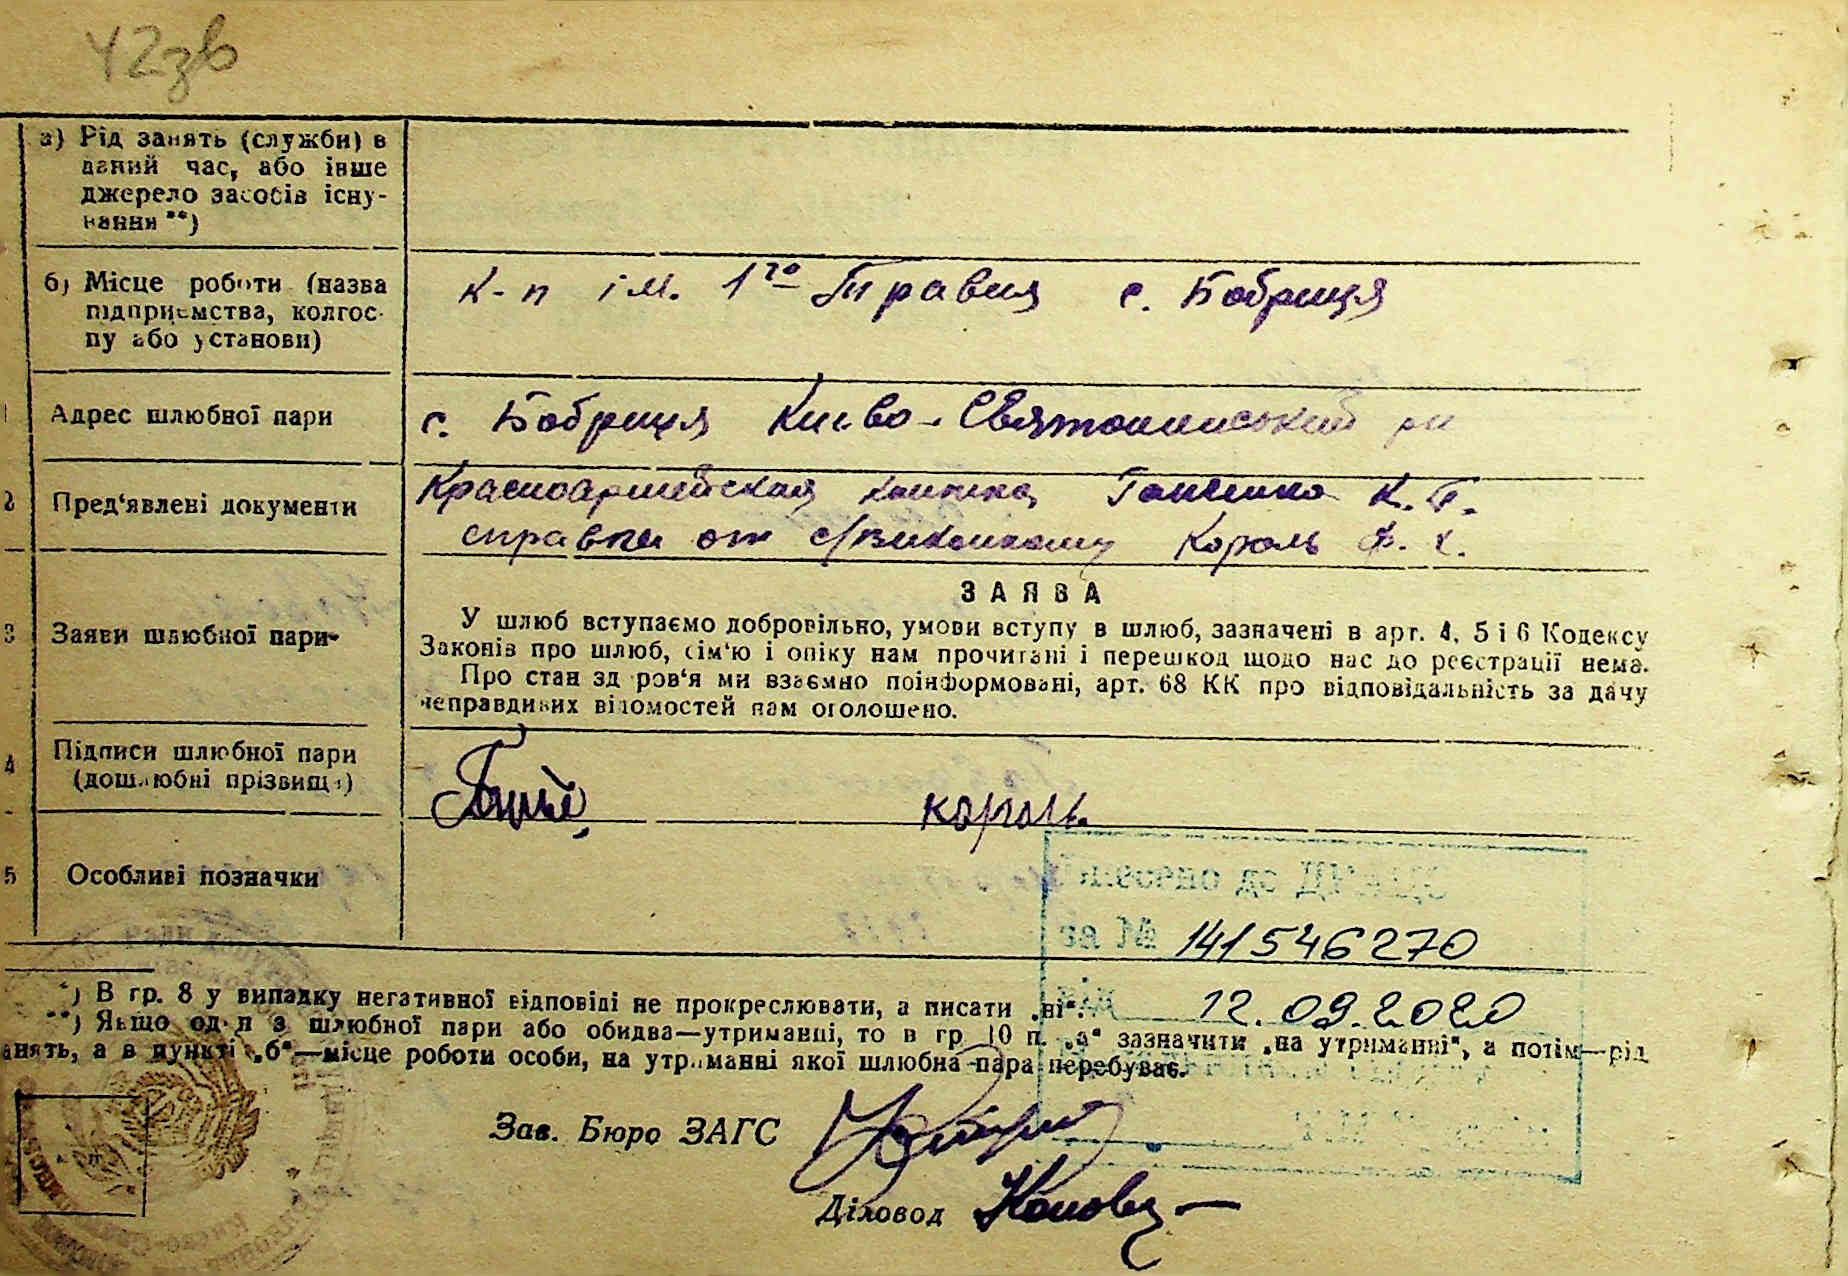 42зв
а) Рід занять (служби) в
даний час, або інше
джерело засобів існу-
вання **)
б) Місце роботи (назва
підприємства, колгос-
пу або установи)
к-п ім. 1го Травня с. Бобриця
Адрес шлюбної пари
с. Бобриця Києво-Святошинський рн
2 Пред'явлені документи
Красноармейская книжка К. Г.
справка от с/виконкому Король Ф. Х.
3 Заяви шлюбної пари
ЗАЯВА
У шлюб вступаємо добровільно, умови вступу в шлюб, зазначені в арт. 4, 5 і 6 Кодексу
Законів про шлюб, сім'ю і опіку нам прочитані і перешкод щодо нас до реєстрації нема.
Про стан здоров'я ми взаємно поінформовані, арт. 68 КК про відповідальність за дачу
неправдивих відомостей нам оголошено.
4 Підписи шлюбної пари
(дошлюбні прізвища)
король
5 Особливі позначки
внесено до ДРАЦС
за № 141546270
від 12.09.2020
*) В гр. 8 у випадку негативної відповіді не прокреслювати, а писати „ні“.
**) Якщо один з шлюбної пари або обидва—утриманці, то в гр. 10 п. „а“ зазначити „на утриманні“, а потім—рід
анять, а в пункті „б“—місце роботи особи, на утриманні якої шлюбна пара перебуває.
Зав. Бюро ЗАГС
Діловод